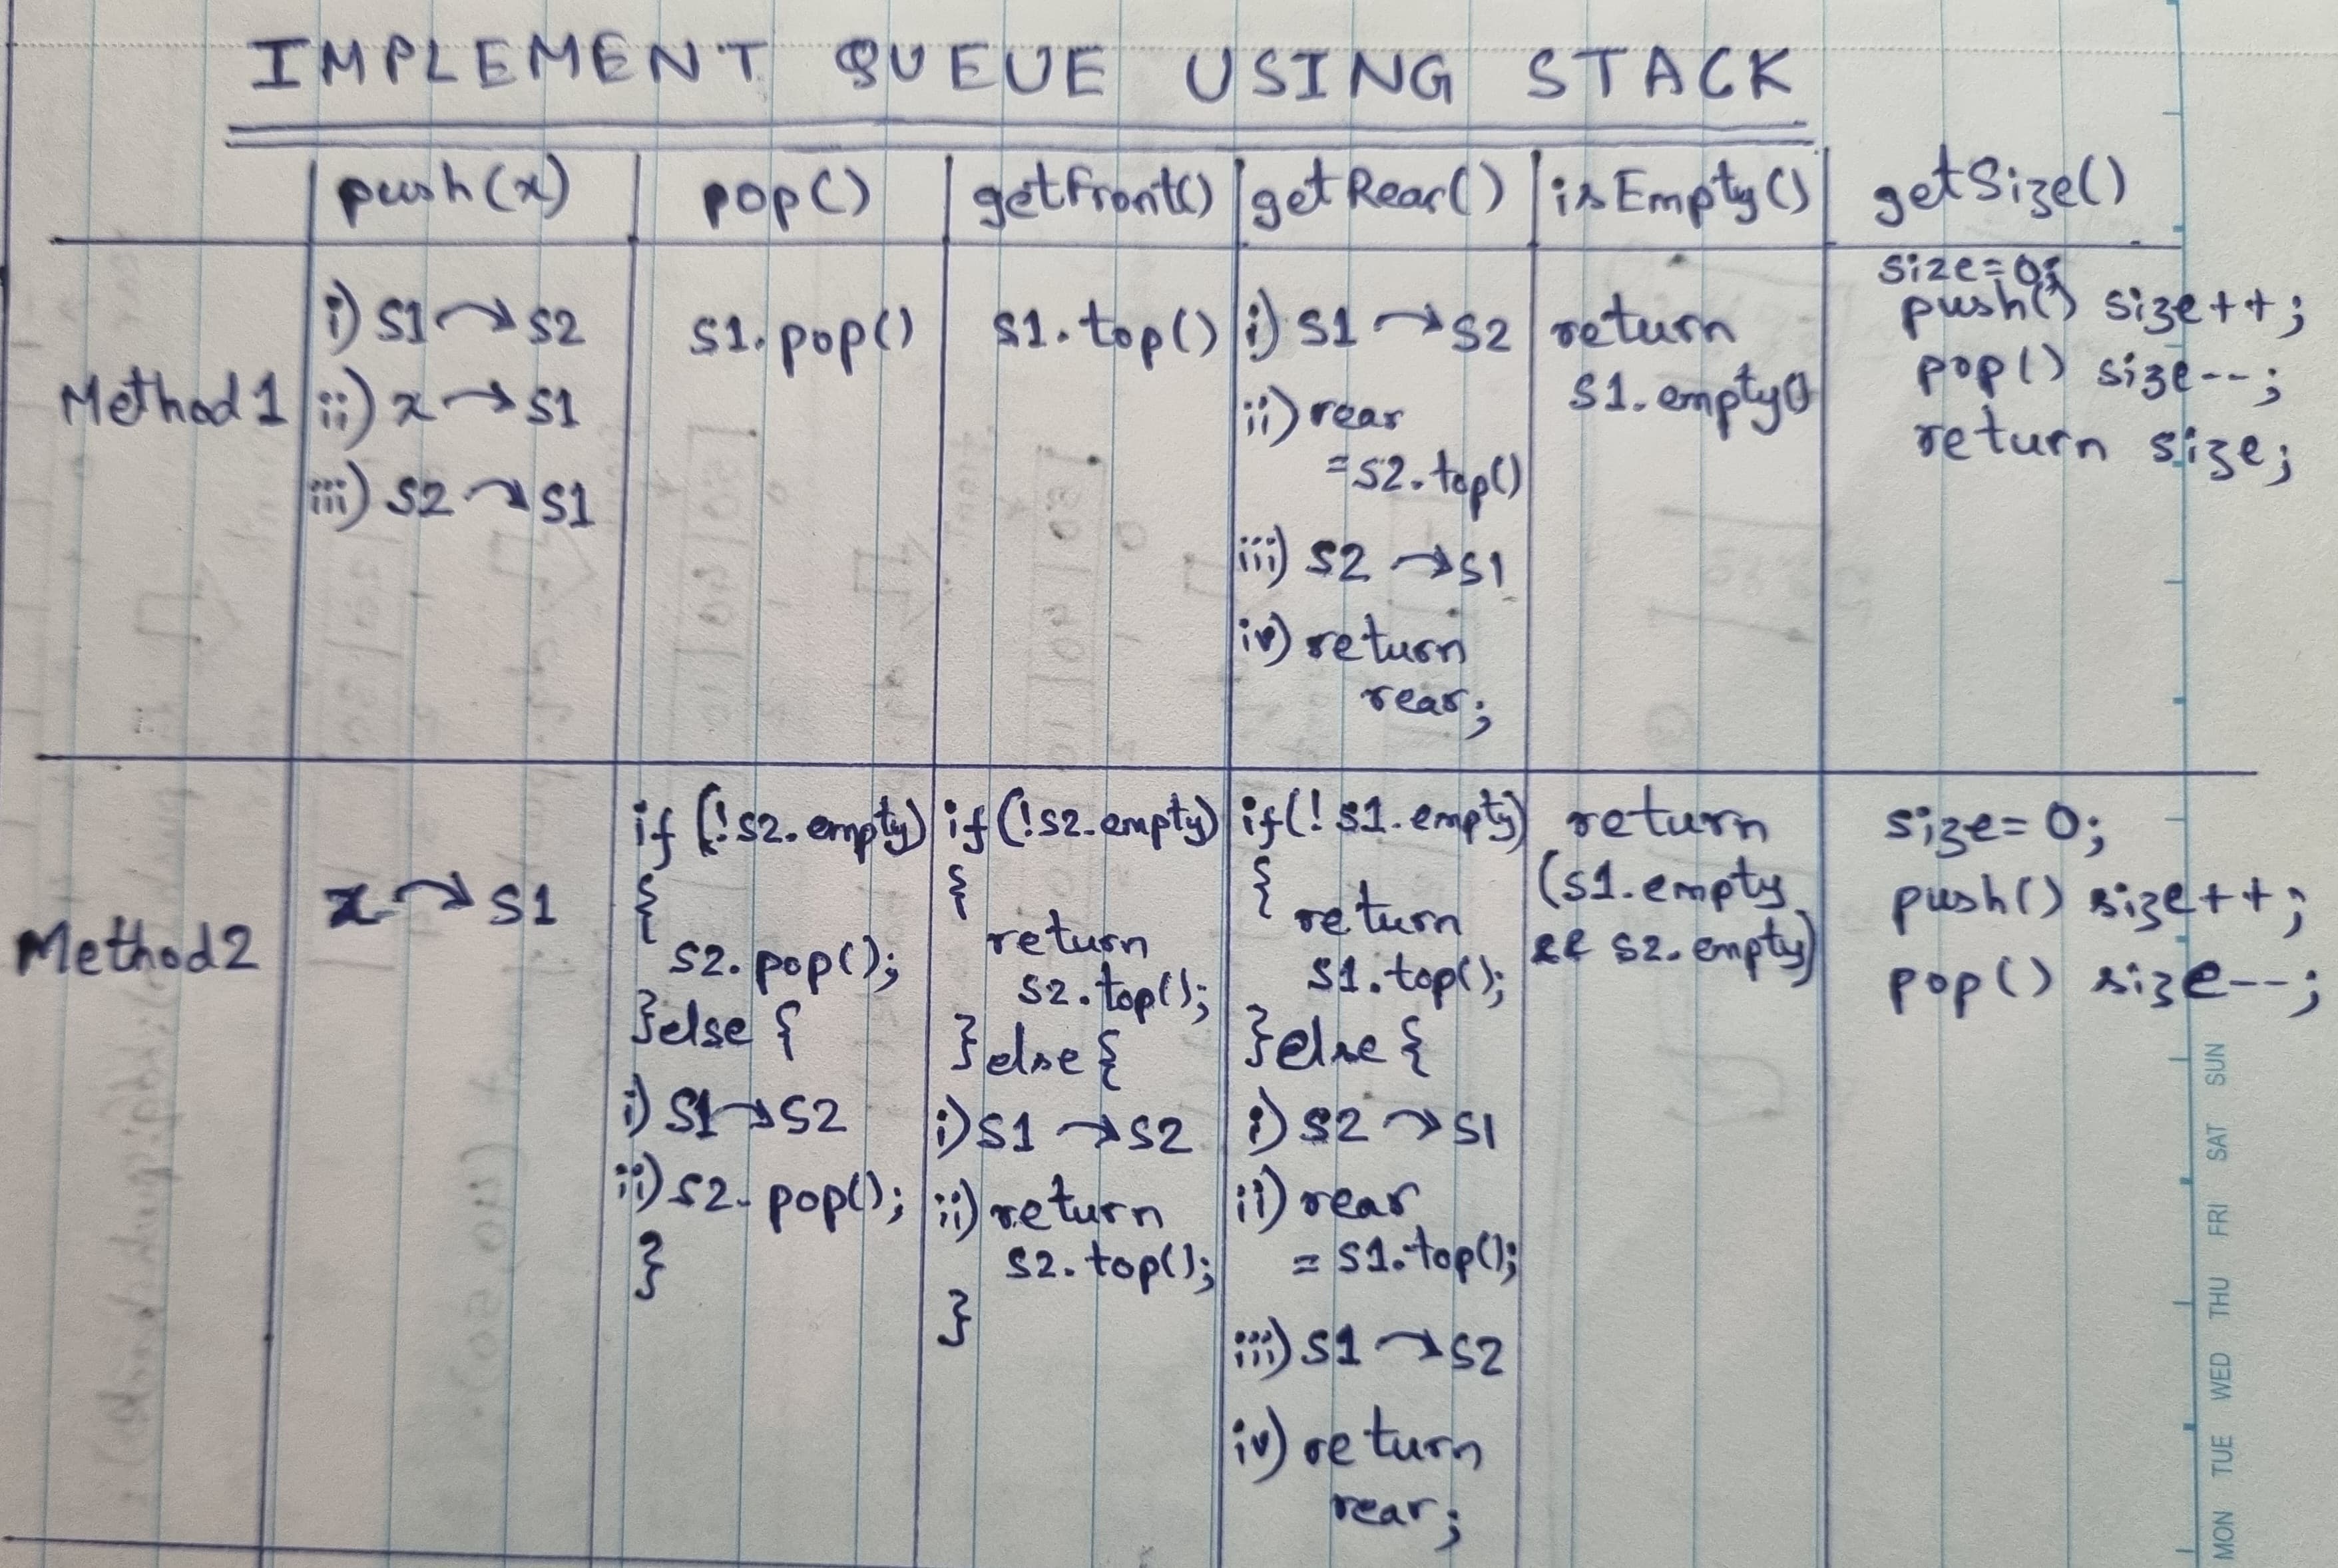 IMPLEMENT QUEUE USING STACK
push(x)
pop()
getFront()
getRear()
isEmpty()
getSize()
Method 1
i) S1 → S2
ii) x → S1
iii) S2 → S1
S1.pop()
S1.top()
i) S1 → S2
ii) rear
= S2.top()
iii) S2 → S1
iv) return
rear;
return
S1.empty()
size=0;
push() size++;
pop() size--;
return size;
Method 2
x → S1
if (!S2.empty)
{
S2.pop();
}else {
i) S1 → S2
ii) S2.pop();
}
if (!S2.empty)
{
return
S2.top();
}else {
i) S1 → S2
ii) return
S2.top();
}
if(!S1.empty)
{
return
S1.top();
}else {
i) S2 → S1
ii) rear
= S1.top();
iii) S1 → S2
iv) return
rear;
return
(S1.empty
&& S2.empty)
size=0;
push() size++;
pop() size--;
MON TUE WED THU FRI SAT SUN